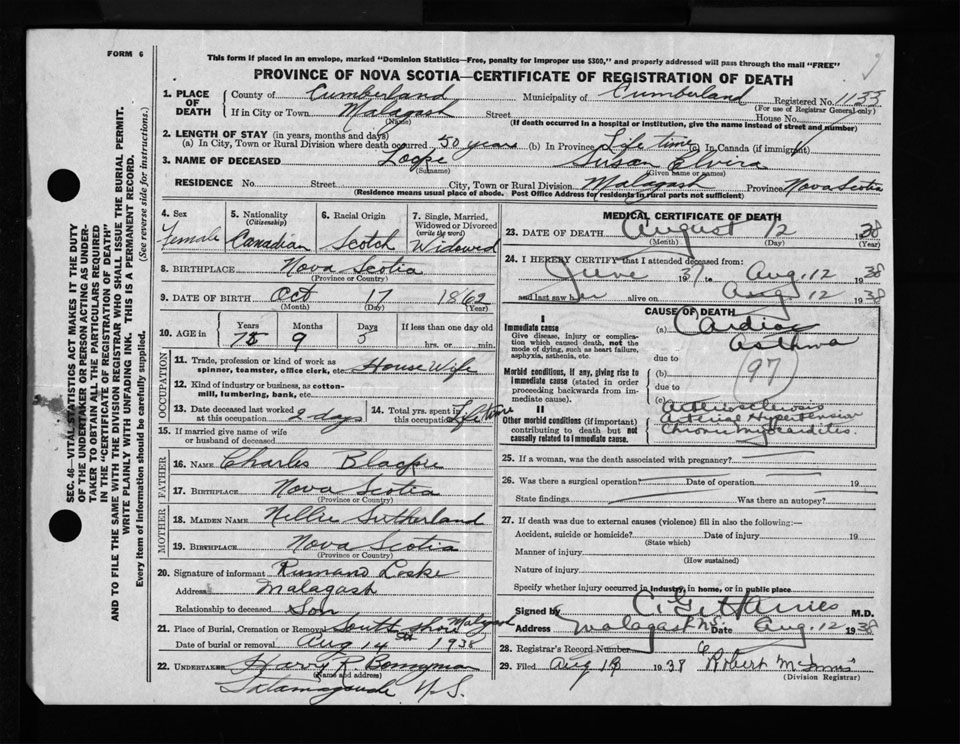 FORM 6
This form if placed in an envelope, marked "Dominion Statistics—Free, penalty for improper use $300," and properly addressed will pass through the mail "FREE"
PROVINCE OF NOVA SCOTIA—CERTIFICATE OF REGISTRATION OF DEATH
1. PLACE OF DEATH County of Cumberland Municipality of Cumberland Registered No. 1133
(For use of Registrar General only)
If in City or Town Malagash Street House No.
(Name) (If death occurred in a hospital or institution, give the name instead of street and number)
2. LENGTH OF STAY (in years, months and days)
(a) In City, Town or Rural Division where death occurred 50 years (b) In Province Life time (c) In Canada (if immigrant)
3. NAME OF DECEASED Susan Elvira
(Surname) (Given name or names)
RESIDENCE No. Street City, Town or Rural Division Malagash Province Nova Scotia
(Residence means usual place of abode. Post Office Address for residents in rural parts not sufficient)
4. Sex Female
5. Nationality (Citizenship) Canadian
6. Racial Origin Scotch
7. Single, Married, Widowed or Divorced (write the word) Widowed
8. BIRTHPLACE Nova Scotia
(Province or Country)
9. DATE OF BIRTH Oct 17 1862
(Month) (Day) (Year)
10. AGE in Years Months Days If less than one day old
75 9 hrs. or min.
OCCUPATION
11. Trade, profession or kind of work as spinner, teamster, office clerk, etc. House Wife
12. Kind of industry or business, as cotton-mill, lumbering, bank, etc.
13. Date deceased last worked at this occupation 2 days
14. Total yrs. spent in this occupation Life time
15. If married give name of wife or husband of deceased
FATHER
16. NAME Charles
17. BIRTHPLACE Nova Scotia
(Province or Country)
MOTHER
18. MAIDEN NAME Nellie Sutherland
19. BIRTHPLACE Nova Scotia
(Province or Country)
20. Signature of informant
Address Malagash
Relationship to deceased Son
21. Place of Burial, Cremation or Removal South Shore Malagash
Date of burial or removal Aug 14th 1938
22. UNDERTAKER Harry R Bonnyman
(Name and address)
Tatamagouche N.S.
MEDICAL CERTIFICATE OF DEATH
23. DATE OF DEATH August 12 1938
(Month) (Day) (Year)
24. I HEREBY CERTIFY that I attended deceased from:
June 37 to Aug. 12 1938
and last saw her alive on Aug 12 1938
CAUSE OF DEATH
I
Immediate cause
Give disease, injury or complication which caused death, not the mode of dying, such as heart failure, asphyxia, asthenia, etc.
(a) Cardiac Asthma
due to
Morbid conditions, if any, giving rise to immediate cause (stated in order proceeding backwards from immediate cause).
(b) (97)
due to
II
Other morbid conditions (if important) contributing to death but not causally related to immediate cause.
Arteriosclerosis
Arterial Hypertension
Chronic Myocarditis.
25. If a woman, was the death associated with pregnancy?
26. Was there a surgical operation? Date of operation 19
State findings Was there an autopsy?
27. If death was due to external causes (violence) fill in also the following:—
Accident, suicide or homicide? Date of injury 19
(State which)
Manner of injury
(How sustained)
Nature of injury
Specify whether injury occurred in industry, in home, or in public place
Signed by M.D.
Address Malagash N.S. Date Aug. 12 1938
28. Registrar's Record Number
29. Filed Aug 1938 Robert
(Division Registrar)
SEC. 46—VITAL STATISTICS ACT MAKES IT THE DUTY
OF THE UNDERTAKER OR PERSON ACTING AS UNDER-
TAKER TO OBTAIN ALL THE PARTICULARS REQUIRED
IN THE "CERTIFICATE OF REGISTRATION OF DEATH"
AND TO FILE THE SAME WITH THE DIVISION REGISTRAR WHO SHALL ISSUE THE BURIAL PERMIT.
WRITE PLAINLY WITH UNFADING INK. THIS IS A PERMANENT RECORD.
Every item of information should be carefully supplied. (See reverse side for instructions.)